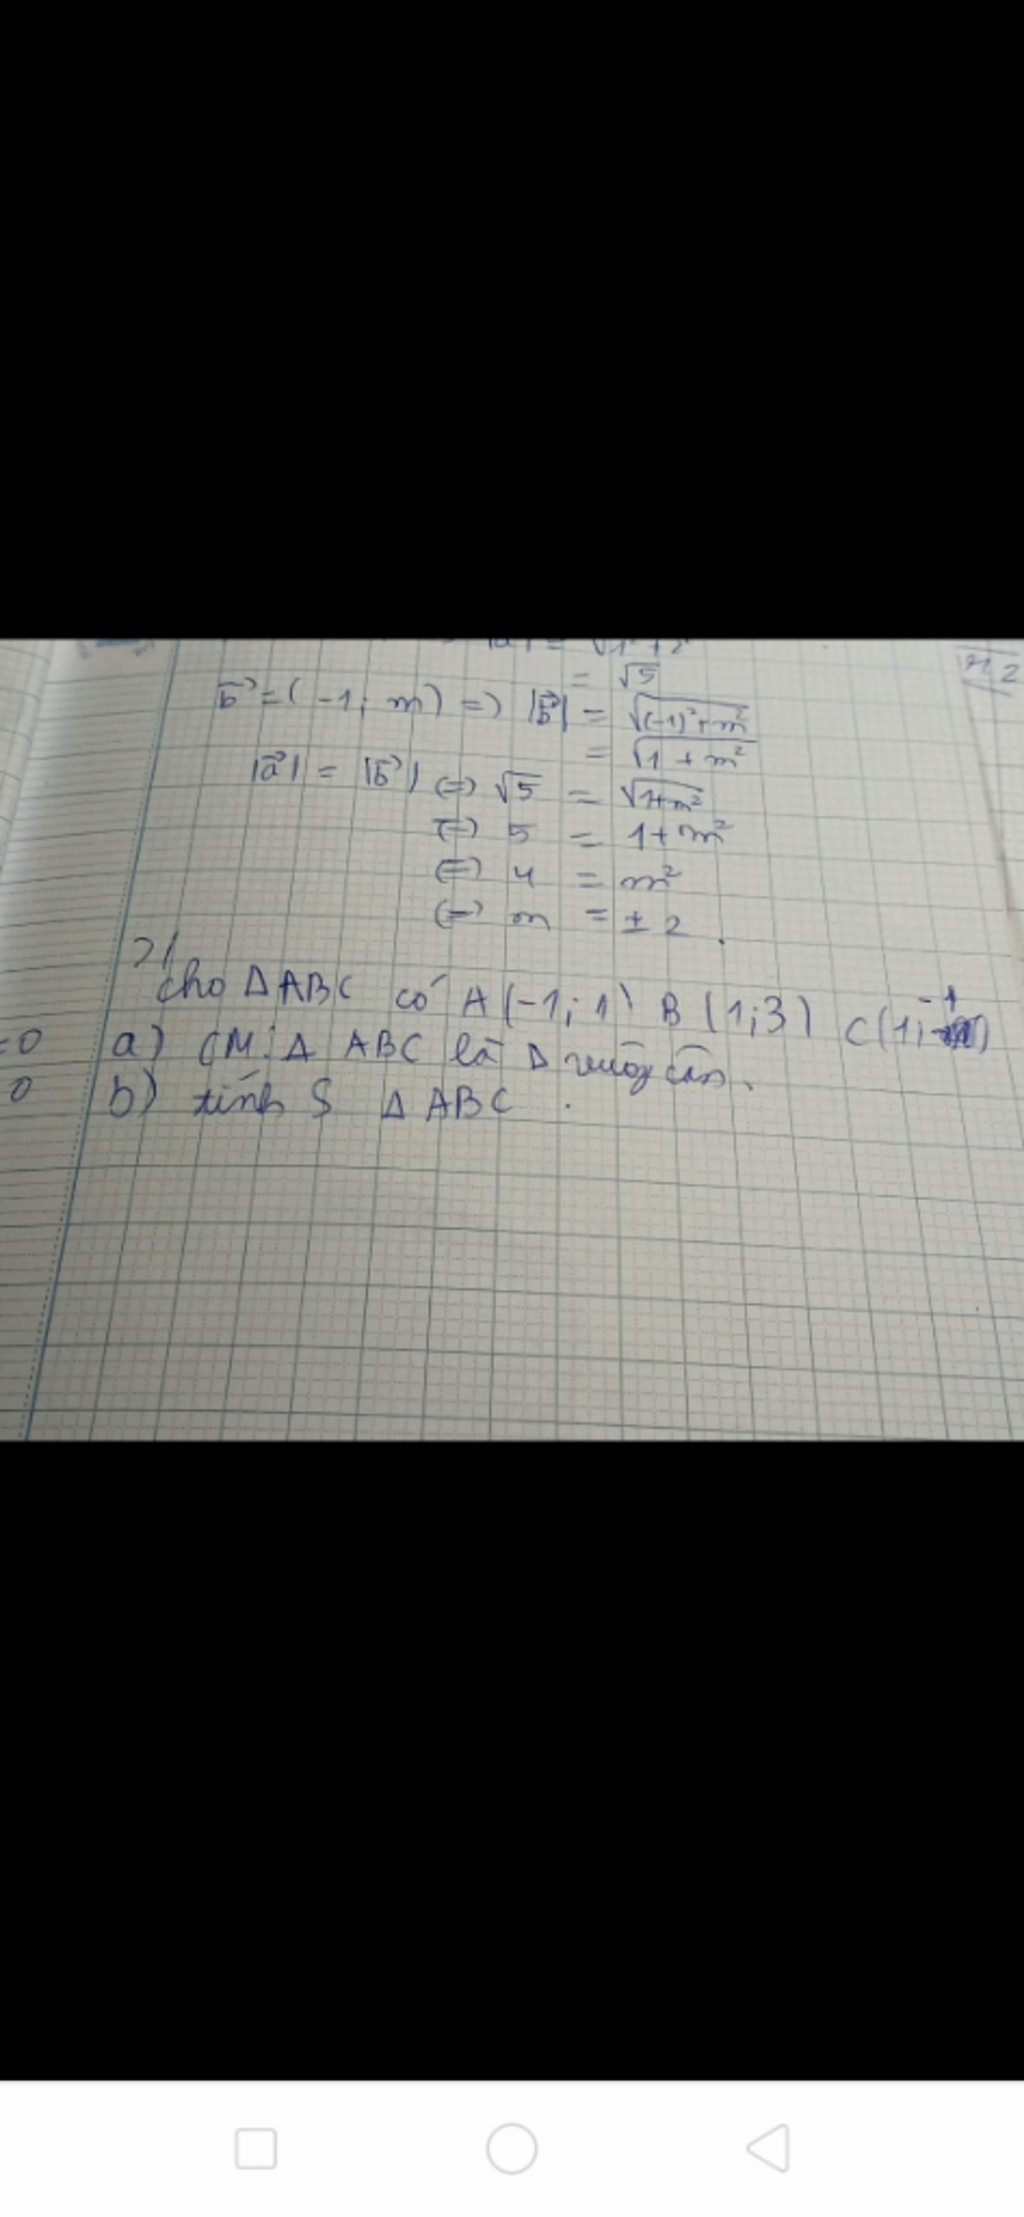 = √5
b⃗ = (-1; m) => |b⃗| = √(-1)² + m²
= √1 + m²
|a⃗| = |b⃗| <=> √5 = √1+m²
<=> 5 = 1 + m²
<=> 4 = m²
<=> m = ± 2.
2/
Cho Δ ABC có A(-1; 1) B(1; 3) C(1; -1)
=0 a) CM: Δ ABC là Δ vuông cân.
0 b) tính S Δ ABC.